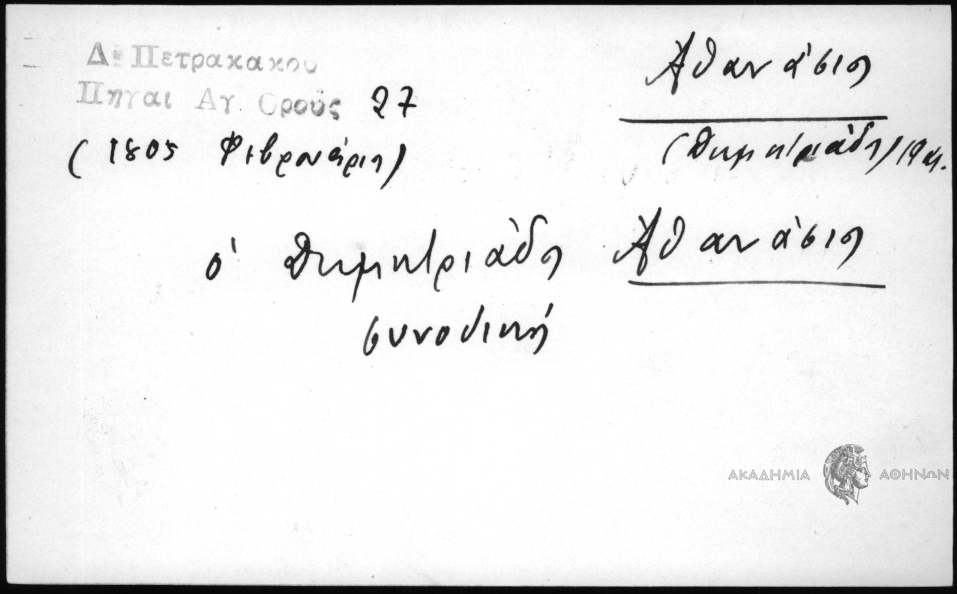 Δ. Πετρακακου
Πηγαι Αγ. Ορους 27
(1805 Φεβρουάριος)
Ἀθανάσιος
(Δημητριάδος) 19 αι.
ὁ Δημητριάδος Ἀθανάσιος
συνοδική
ΑΚΑΔΗΜΙΑ ΑΘΗΝΩΝ